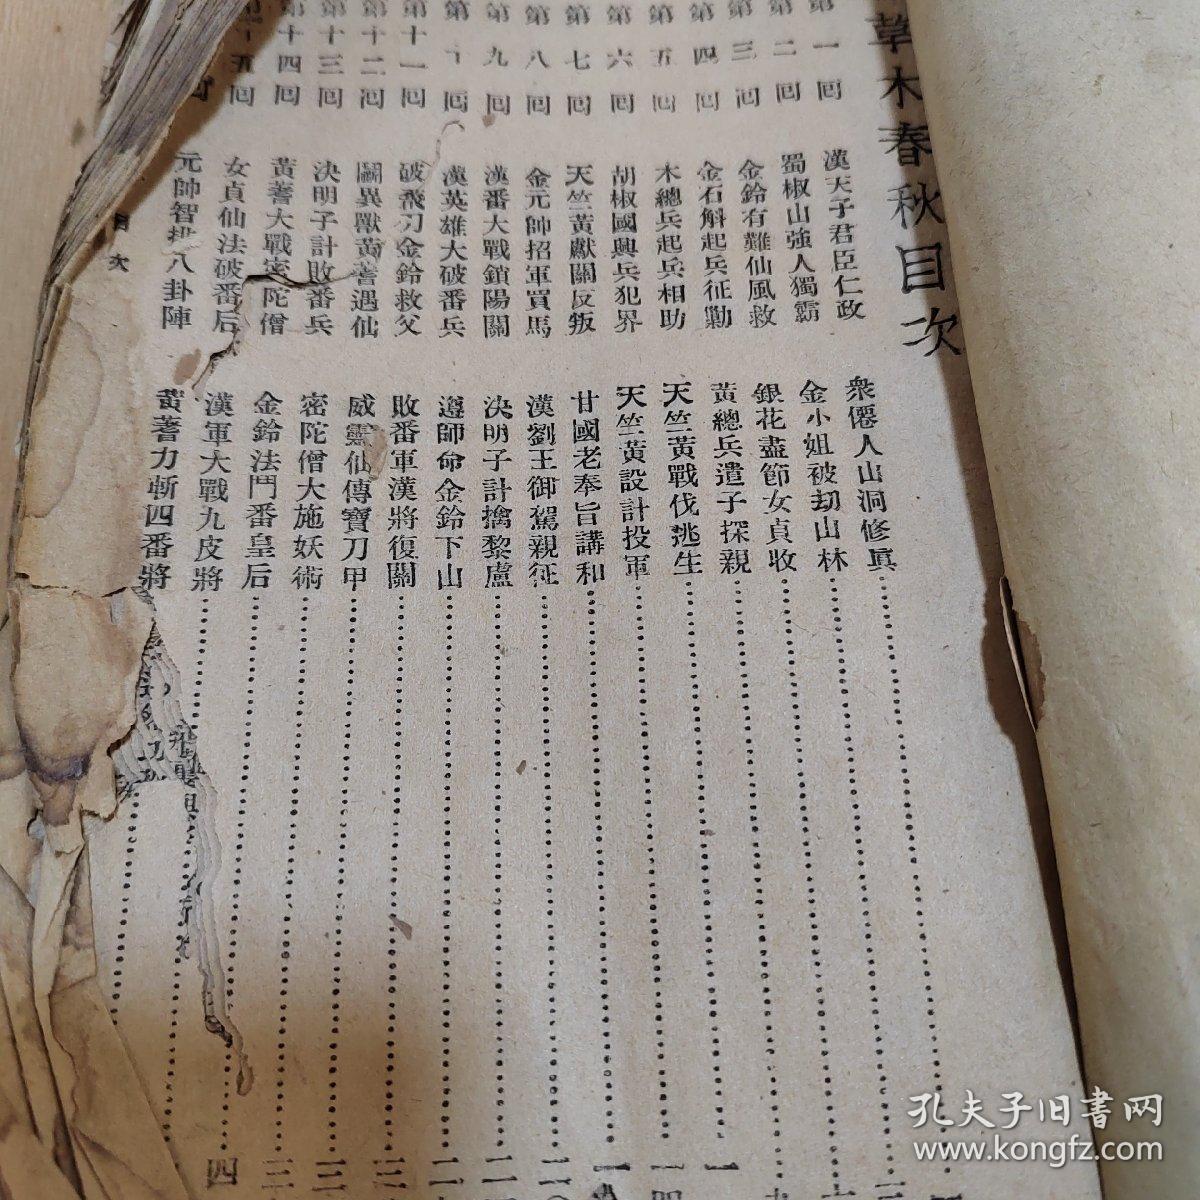 草木春秋目次
第一回 漢天子君臣仁政 衆僊人山洞修眞
第二回 蜀椒山強人獨霸 金小姐被刼山林
第三回 金鈴有難仙風救 銀花盡節女貞收
第四回 金石斛起兵征勦 黃總兵遣子探親
第五回 木總兵起兵相助 天竺黃戰伐逃生
第六回 胡椒國興兵犯界 天竺黃設計投軍
第七回 天竺黃獻關反叛 甘國老奉旨講和
第八回 金元帥招軍買馬 漢劉王御駕親征
第九回 漢番大戰鎖陽關 決明子計擒黎盧
第十回 漢英雄大破番兵 遵師命金鈴下山
第十一回 破飛刀金鈴救父 敗番軍漢將復關
第十二回 鬭異獸黃蓍遇仙 威靈仙傳寶刀甲
第十三回 決明子計敗番兵 密陀僧大施妖術
第十四回 黃蓍大戰密陀僧 金鈴法鬥番皇后
十五回 女貞仙法破番后 漢軍大戰九皮將
元帥智排八卦陣 黃蓍力斬四番將
次
孔夫子旧書网
www.kongfz.com